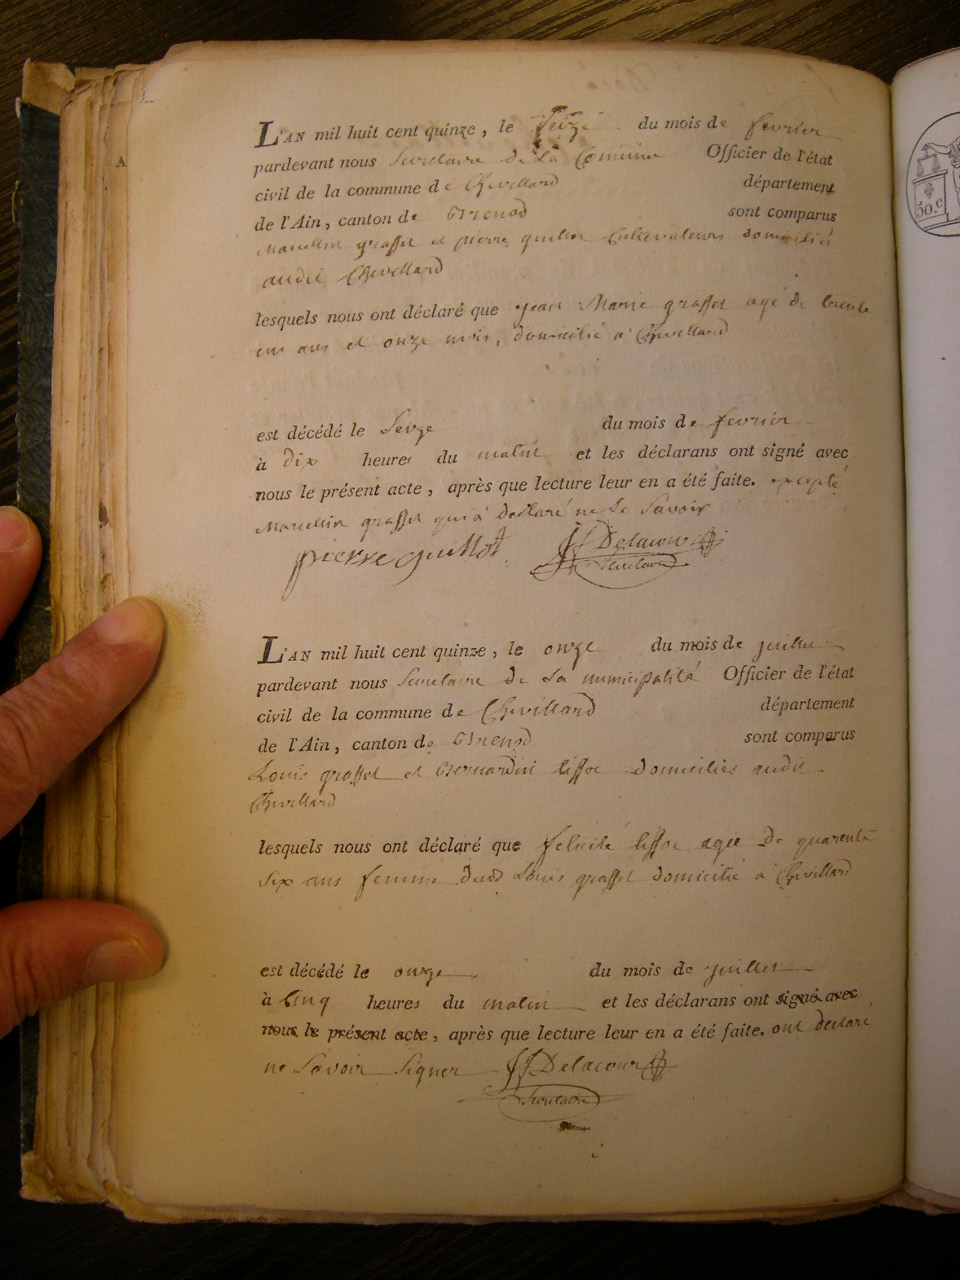 L'AN mil huit cent quinze, le seize du mois de fevrier
pardevant nous Secretaire de la Commune Officier de l'état
civil de la commune de Chevillard département
de l'Ain, canton de Brenod sont comparus
Marcellin grasset et pierre Cultivateurs domiciliés
audit Chevillard
lesquels nous ont déclaré que jean Marie grasset agé de trente
un ans et onze mois, domicilié a Chevillard
est décédé le Seize du mois de fevrier
à dix heures du matin et les déclarans ont signé avec
nous le présent acte, après que lecture leur en a été faite. excepté
Marcellin grasset qui a declaré ne le Savoir
pierre guillot Delacour
Secretaire
L'AN mil huit cent quinze, le onze du mois de juillet
pardevant nous Secretaire de la municipalité Officier de l'état
civil de la commune de Chevillard département
de l'Ain, canton de Brenod sont comparus
Louis grasset et Bernardin domiciliés audit
Chevillard
lesquels nous ont déclaré que felicité agée de quarente
Six ans femme dudt Louis grasset domicilié a Chevillard
est décédé le onze du mois de juillet
à Cinq heures du matin et les déclarans ont signé avec
nous le présent acte, après que lecture leur en a été faite. ont declaré
ne Savoir Signer Delacour
Secretaire
50.c